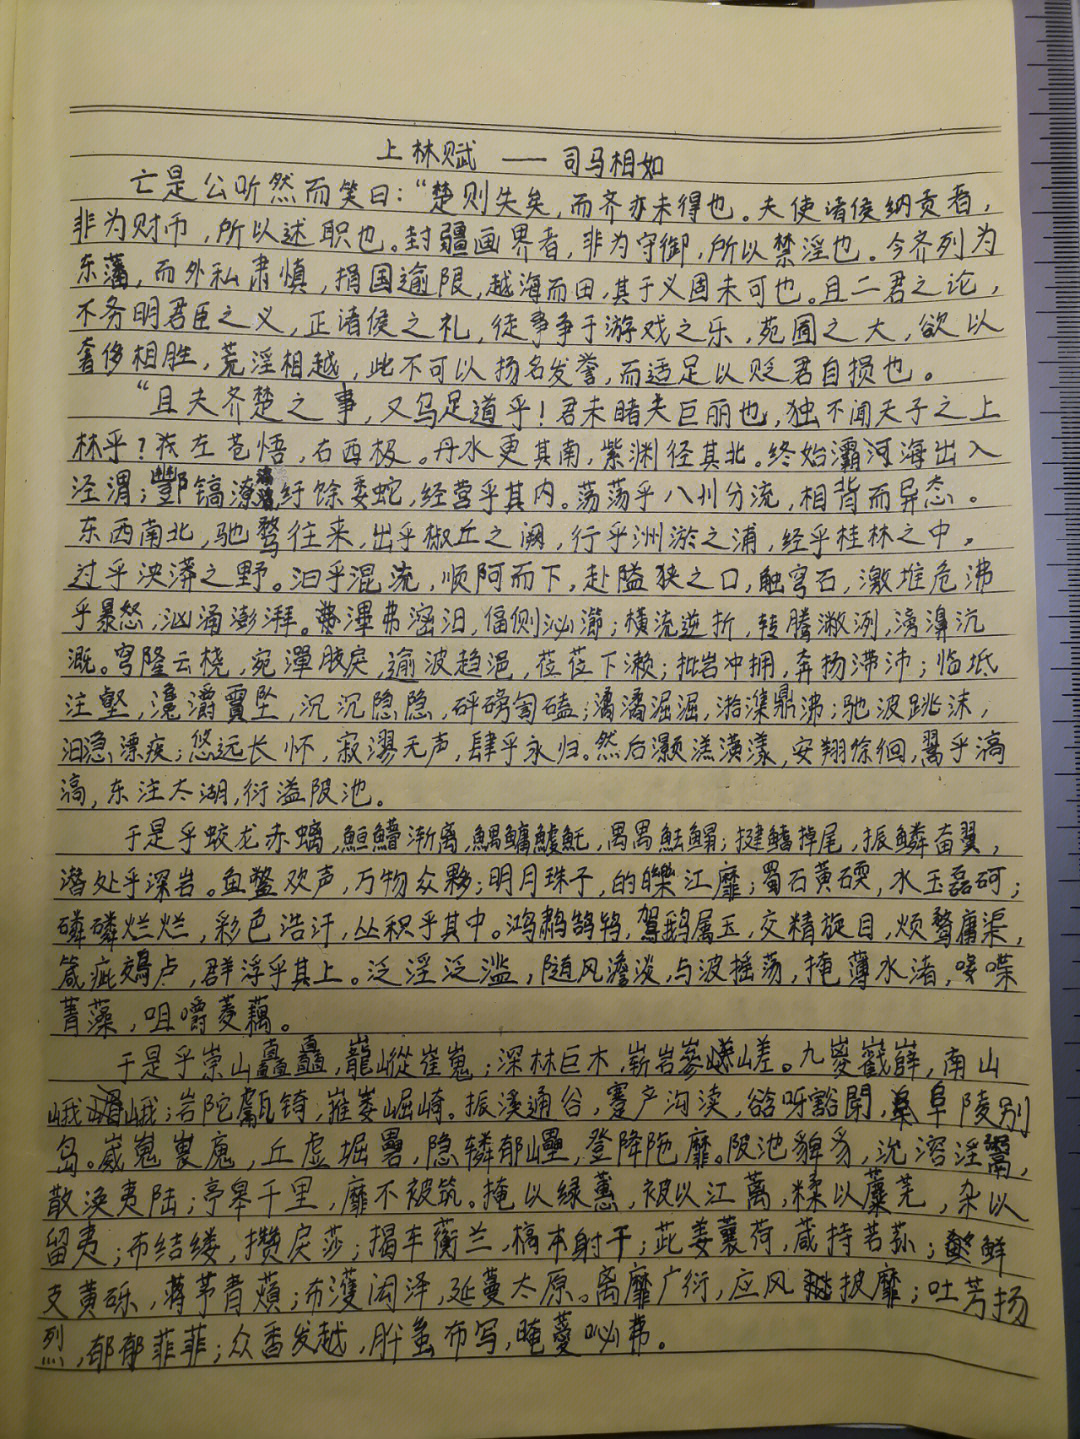 上林赋 —— 司马相如
亡是公听然而笑曰：“楚则失矣，而齐亦未得也。夫使诸侯纳贡者，
非为财币，所以述职也。封疆画界者，非为守御，所以禁淫也。今齐列为
东藩，而外私肃慎，捐国逾限，越海而田，其于义固未可也。且二君之论，
不务明君臣之义，正诸侯之礼，徒事争于游戏之乐，苑囿之大，欲以
奢侈相胜，荒淫相越，此不可以扬名发誉，而适足以贬君自损也。
“且夫齐楚之事，又乌足道乎！君未睹夫巨丽也，独不闻天子之上
林乎？左苍梧，右西极。丹水更其南，紫渊径其北。终始灞河海出入
泾渭；酆镐潦潏纡馀委蛇，经营乎其内。荡荡乎八川分流，相背而异态。
东西南北，驰骛往来，出乎椒丘之阙，行乎洲淤之浦，经乎桂林之中，
过乎泱漭之野。汩乎混流，顺阿而下，赴隘狭之口，触穹石，激堆危沸
乎暴怒，汹涌澎湃。滭弗宓汩，偪侧泌瀄；横流逆折，转腾潎洌，滂濞沆
溉。穹隆云桡，宛潬胶戾，逾波趋浥，莅莅下濑；批岩冲拥，奔扬滞沛；临坻
注壑，瀺灂霣坠，沉沉隐隐，砰磅訇磕；潏潏淈淈，湁潗鼎沸；驰波跳沫，
汩㴔漂疾；悠远长怀，寂漻无声，肆乎永归。然后灏溔潢漾，安翔徐徊，翯乎滈
滈，东注太湖，衍溢陂池。
于是乎蛟龙赤螭，䱭䲛渐离，鰅鳙鰬魠，禺禺魼鳎；揵鳍掉尾，振鳞奋翼，
潜处乎深岩。鱼鳖欢声，万物众夥；明月珠子，的皪江靡；蜀石黄碝，水玉磊砢；
磷磷烂烂，彩色浩汗，丛积乎其中。鸿鹔鹄鸨，鴐鹅属玉，交精旋目，烦鹜庸渠，
箴疵䴔卢，群浮乎其上。泛淫泛滥，随风澹淡，与波摇荡，掩薄水渚，唼喋
菁藻，咀嚼菱藕。
于是乎崇山矗矗，巃嵷崔嵬；深林巨木，崭岩参嵯。九嵕巀嶭，南山
峨峨；岩陀甗锜，摧崣崛崎。振溪通谷，蹇产沟渎，谽呀豁閕，阜陵别
岛。崴嵬㟪廆，丘虚堀礨，隐辚郁㠥，登降陁靡。陂池貏豸，沇溶淫鬻，
散涣夷陆；亭皋千里，靡不被筑。掩以绿蕙，被以江蓠，糅以蘪芜，杂以
留夷；布结缕，攒戾莎；揭车蘅兰，槁本射干；茈姜蘘荷，葴持若荪；鲜
支黄砾，蒋苧青薠；布濩闳泽，延蔓太原。离靡广衍，应风披靡；吐芳扬
烈，郁郁菲菲；众香发越，肸蚃布写，晻薆咇茀。